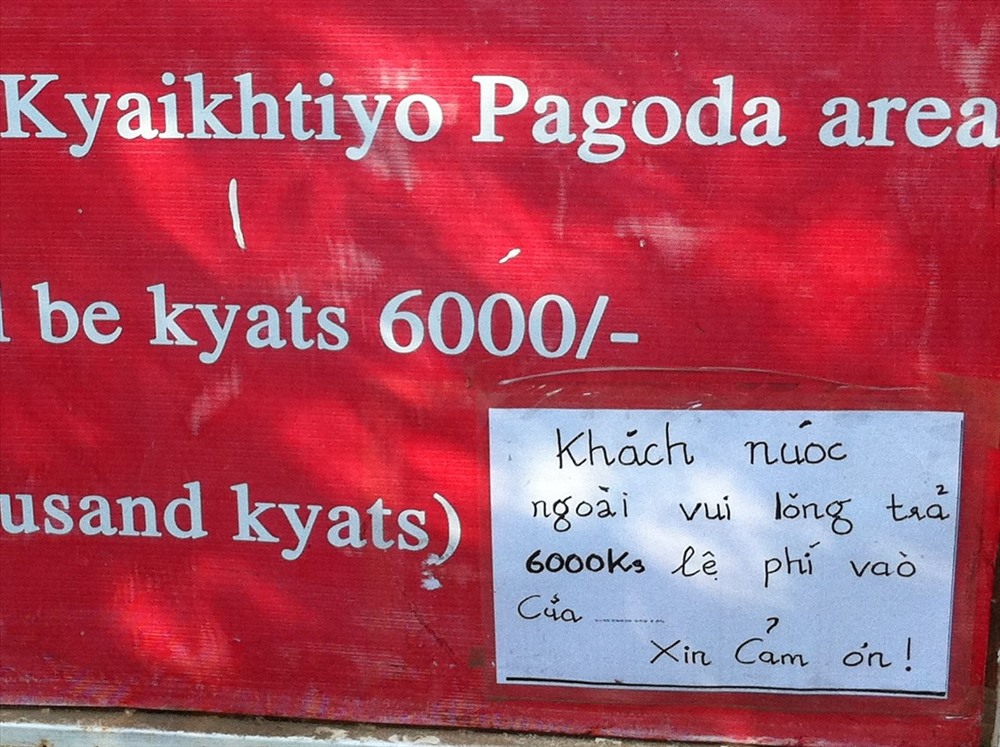 Kyaikhtiyo Pagoda area
be kyats 6000/-
usand kyats)
Khách núóc
ngoài vui lòng trả
6000Ks lệ phí vaò
Của ............
Xin Cảm ón!